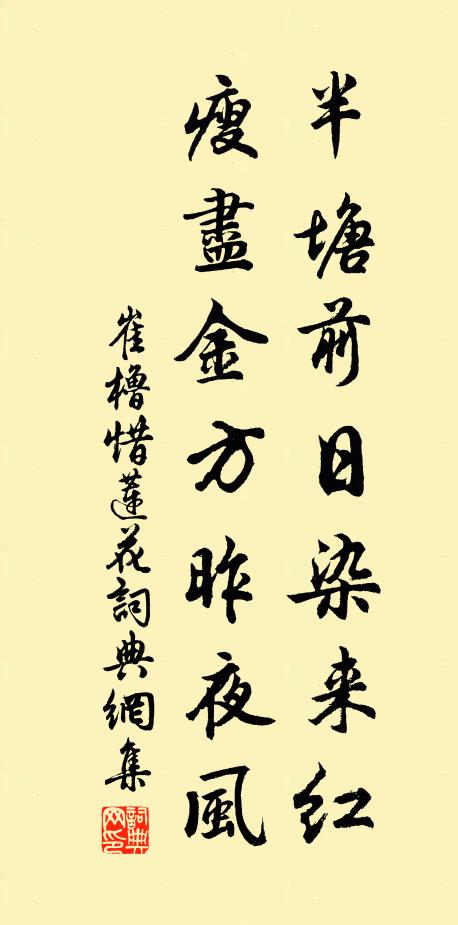 半塘前日染来紅
瘦盡金方昨夜風
崔櫓惜蓮花詞典網集
詞典網印